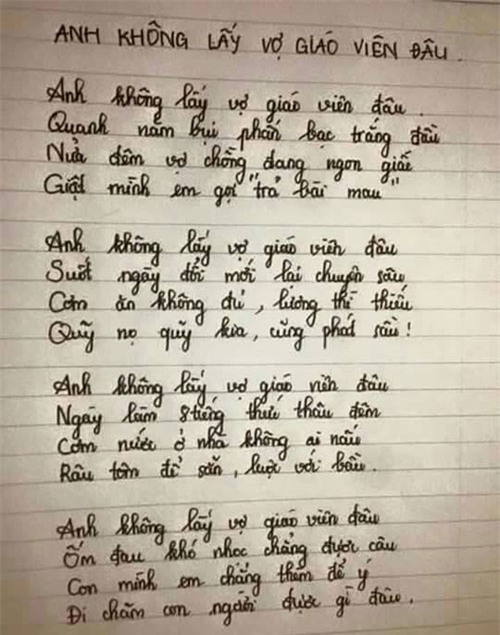 ANH KHÔNG LẤY VỢ GIÁO VIÊN ĐÂU.
Anh không lấy vợ giáo viên đâu
Quanh năm bụi phấn bạc trắng đầu
Nửa đêm vợ chồng đang ngon giấc
Giật mình em gọi "trả bài mau"
Anh không lấy vợ giáo viên đâu
Suốt ngày đổi mới lại chuyên sâu
Cơm ăn không đủ, lương thì thiếu
Quỹ nọ quỹ kia, cũng phát sầu!
Anh không lấy vợ giáo viên đâu
Ngày làm 8 tiếng thức thâu đêm
Cơm nước ở nhà không ai nấu
Râu tôm để sẵn, luộc với bầu.
Anh không lấy vợ giáo viên đâu
Ốm đau khó nhọc chẳng được câu
Con mình em chẳng thèm để ý
Đi chăm con người được gì đâu.